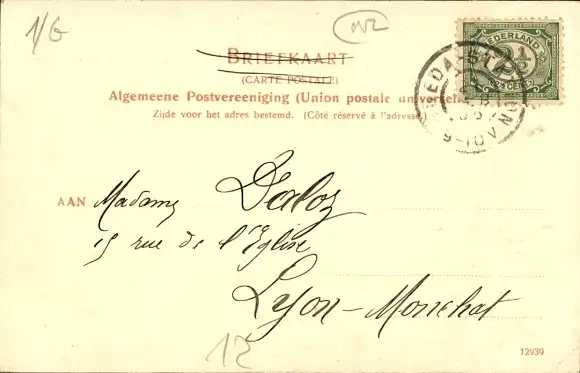 1/G
BRIEFKAART
(CARTE POSTALE)
Algemeene Postvereeniging (Union postale universelle)
Zijde voor het adres bestemd. (Côté réservé à l'adresse)
NEDERLAND
2½
CENT
AAN Madame Daloz
15 rue de l'Eglise
Lyon-Monchat
12
12939